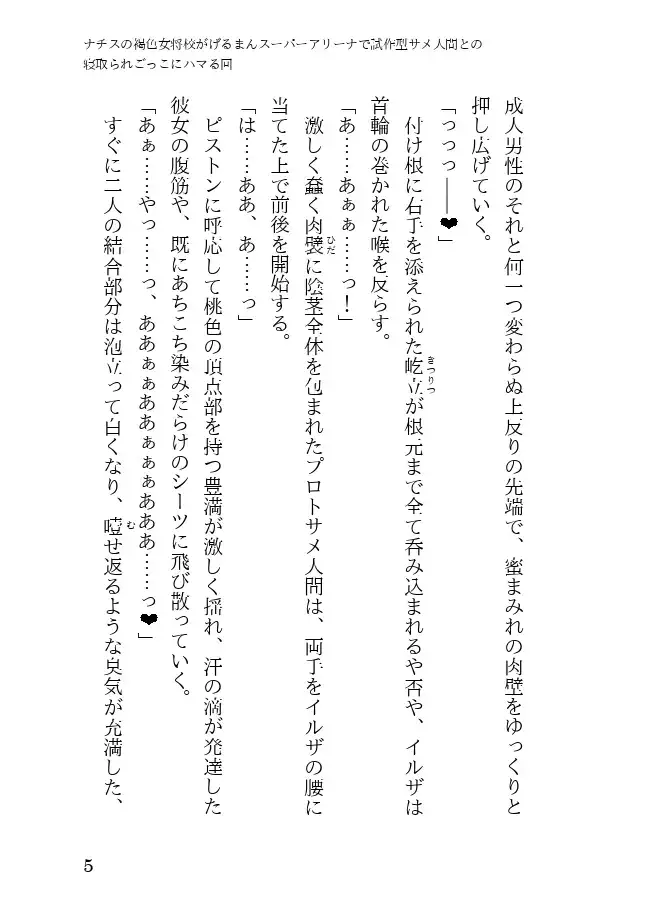 ナチスの褐色女将校がげるまんスーパーアリーナで試作型サメ人間との
寝取られごっこにハマる回
成人男性のそれと何一つ変わらぬ上反りの先端で、蜜まみれの肉壁をゆっくりと
押し広げていく。
「っっっ――❤」
きつりつ
付け根に右手を添えられた屹立が根元まで全て呑み込まれるや否や、イルザは
首輪の巻かれた喉を反らす。
「あ……あぁぁ……っ！」
ひだ
激しく蠢く肉襞に陰茎全体を包まれたプロトサメ人間は、両手をイルザの腰に
当てた上で前後を開始する。
「は……ああ、あ……っ」
ピストンに呼応して桃色の頂点部を持つ豊満が激しく揺れ、汗の滴が発達した
彼女の腹筋や、既にあちこち染みだらけのシーツに飛び散っていく。
「あぁ……やっ……っ、ああぁぁああぁぁぁあああ……っ❤」
む
すぐに二人の結合部分は泡立って白くなり、噎せ返るような臭気が充満した、
5